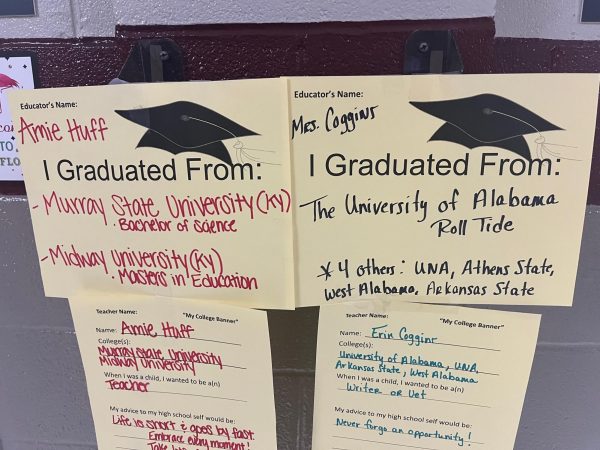 Educator's Name:
Amie Huff
I Graduated From:
- Murray State University (KY)
· Bachelor of Science
- Midway University (KY)
· Masters in Education
Educator's Name:
Mrs. Coggins
I Graduated From:
The University of Alabama
Roll Tide
* 4 others: UNA, Athens State,
West Alabama, Arkansas State
Teacher Name: "My College Banner"
Name: Amie Huff
College(s):
Murray State University
Midway University
When I was a child, I wanted to be a(n)
Teacher
My advice to my high school self would be:
Life is short & goes by fast.
Embrace every moment!
Take
Teacher Name: "My College Banner"
Name: Erin Coggins
College(s):
University of Alabama, UNA,
Arkansas State, West Alabama
When I was a child, I wanted to be a(n)
Writer or Vet
My advice to my high school self would be:
Never forgo an opportunity!
TO A
FLO